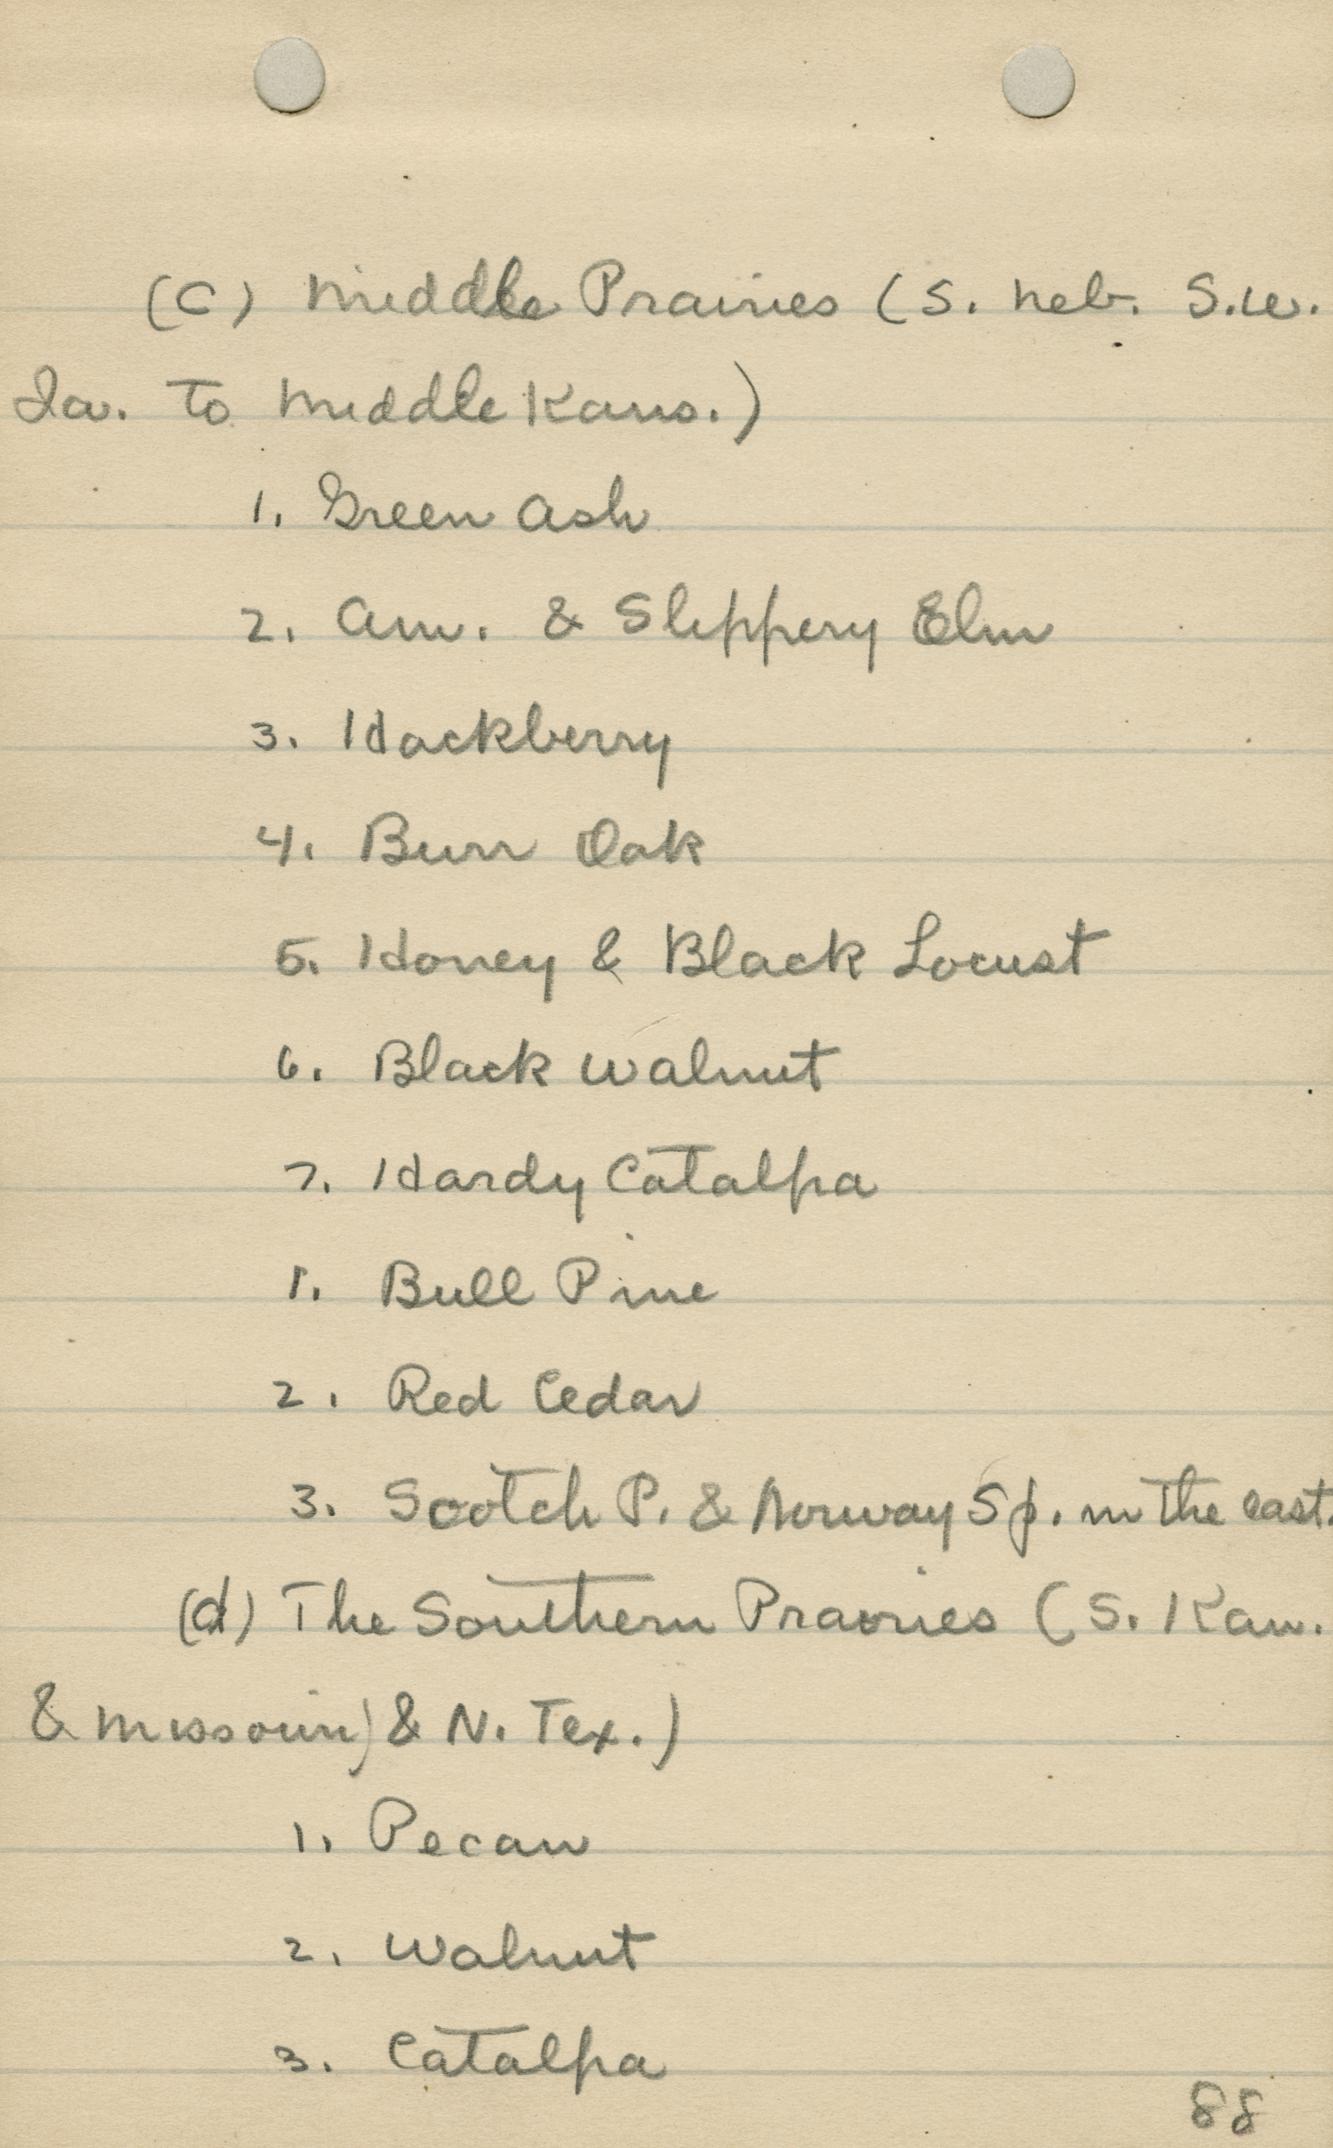 (C) Middle Prairies (S. Neb. S.W.
Ia. To Middle Kans.)
1. Green Ash
2. Am. & Slippery Elm
3. Hackberry
4. Burr Oak
5. Honey & Black Locust
6. Black Walnut
7. Hardy Catalpa
1. Bull Pine
2. Red Cedar
3. Scotch P. & Norway Sp. in the east.
(d) The Southern Prairies (S. Kan.
& Missouri) & N. Tex.)
1. Pecan
2. Walnut
3. Catalpa
88